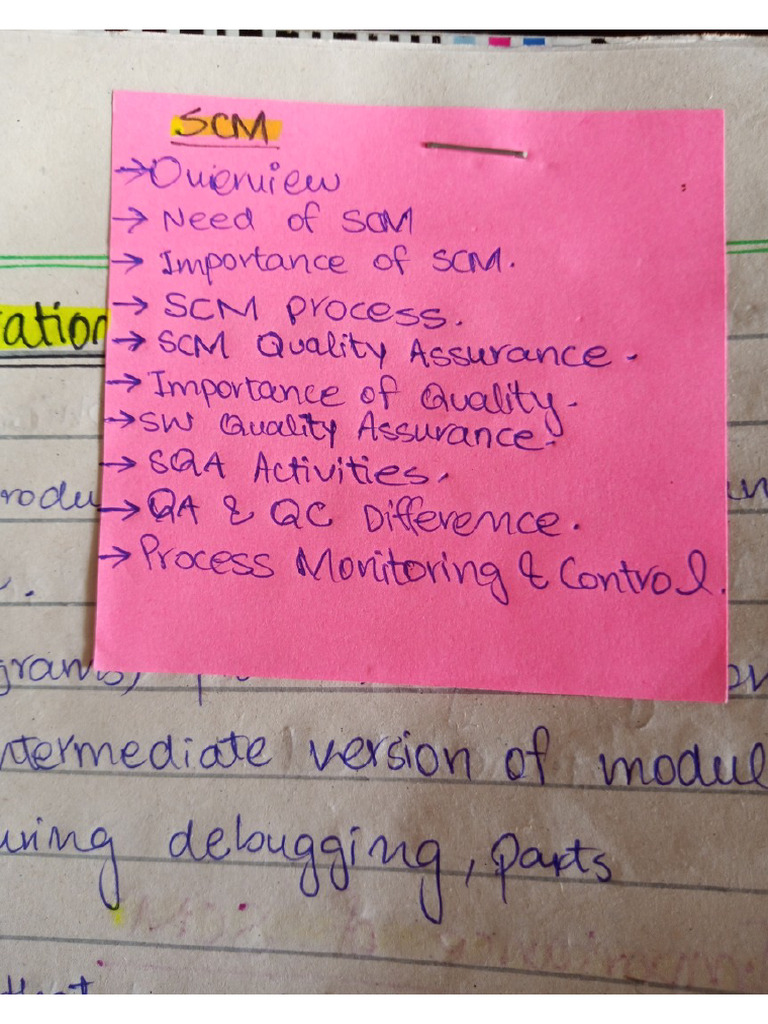 SCM
→ Overview
→ Need of SCM
→ Importance of SCM.
→ SCM Process.
→ SCM Quality Assurance.
→ Importance of Quality.
→ SW Quality Assurance.
→ SQA Activities.
→ QA & QC Difference.
→ Process Monitoring & Control.
ation
rodu
grams,
ntermediate version of modul
uring debugging, parts